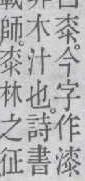 桼今字作漆
非木汁也詩書
師桼林之征